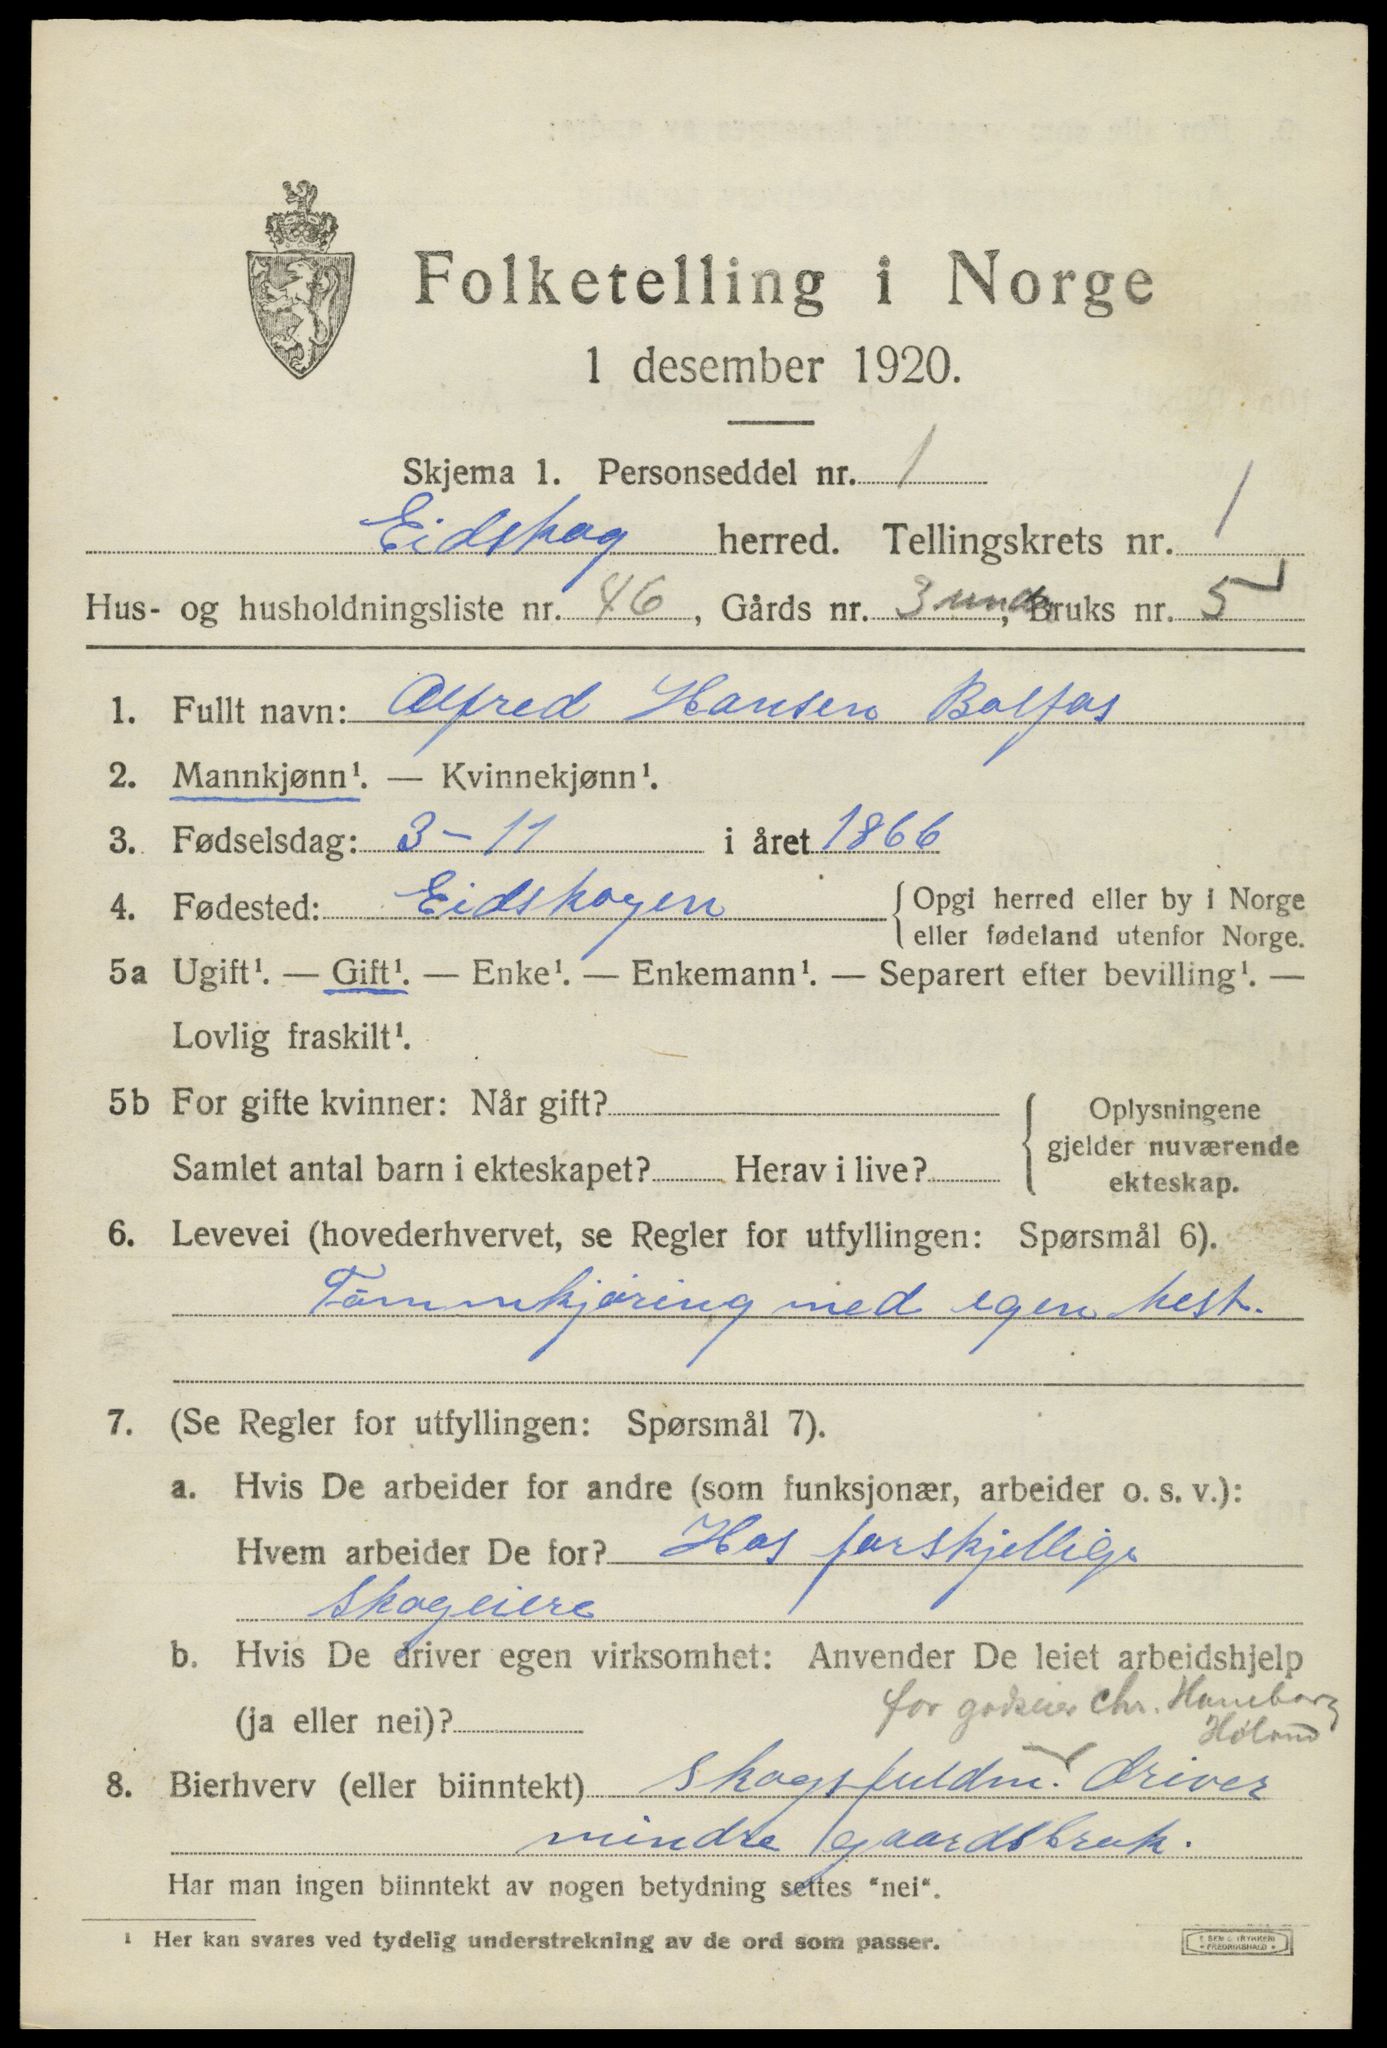 Folketelling i Norge
1 desember 1920.
Skjema 1. Personseddel nr. 1
Eidskog herred. Tellingskrets nr. 1
Hus- og husholdningsliste nr. 46, Gårds nr. 3 under, Bruks nr. 5
1. Fullt navn: Alfred Hansen Bolfos
2. Mannkjønn¹. — Kvinnekjønn¹.
3. Fødselsdag: 3-11 i året 1866
4. Fødested: Eidskogen { Opgi herred eller by i Norge
eller fødeland utenfor Norge.
5a Ugift¹. — Gift¹. — Enke¹. — Enkemann¹. — Separert efter bevilling¹. —
Lovlig fraskilt¹.
5b For gifte kvinner: Når gift? { Oplysningene
gjelder nuværende
Samlet antal barn i ekteskapet? Herav i live? ekteskap.
6. Levevei (hovederhvervet, se Regler for utfyllingen: Spørsmål 6).
Tömmkjøring med egen hest.
7. (Se Regler for utfyllingen: Spørsmål 7).
a. Hvis De arbeider for andre (som funksjonær, arbeider o. s. v.):
Hvem arbeider De for? Hos forskjellige
skogeiere
b. Hvis De driver egen virksomhet: Anvender De leiet arbeidshjelp
(ja eller nei)? for godseier Chr. Haneborg
Høland
8. Bierhverv (eller biinntekt) Skogsfuldm. driver
mindre gaardsbruk.
Har man ingen biinntekt av nogen betydning settes "nei".
¹ Her kan svares ved tydelig understrekning av de ord som passer.